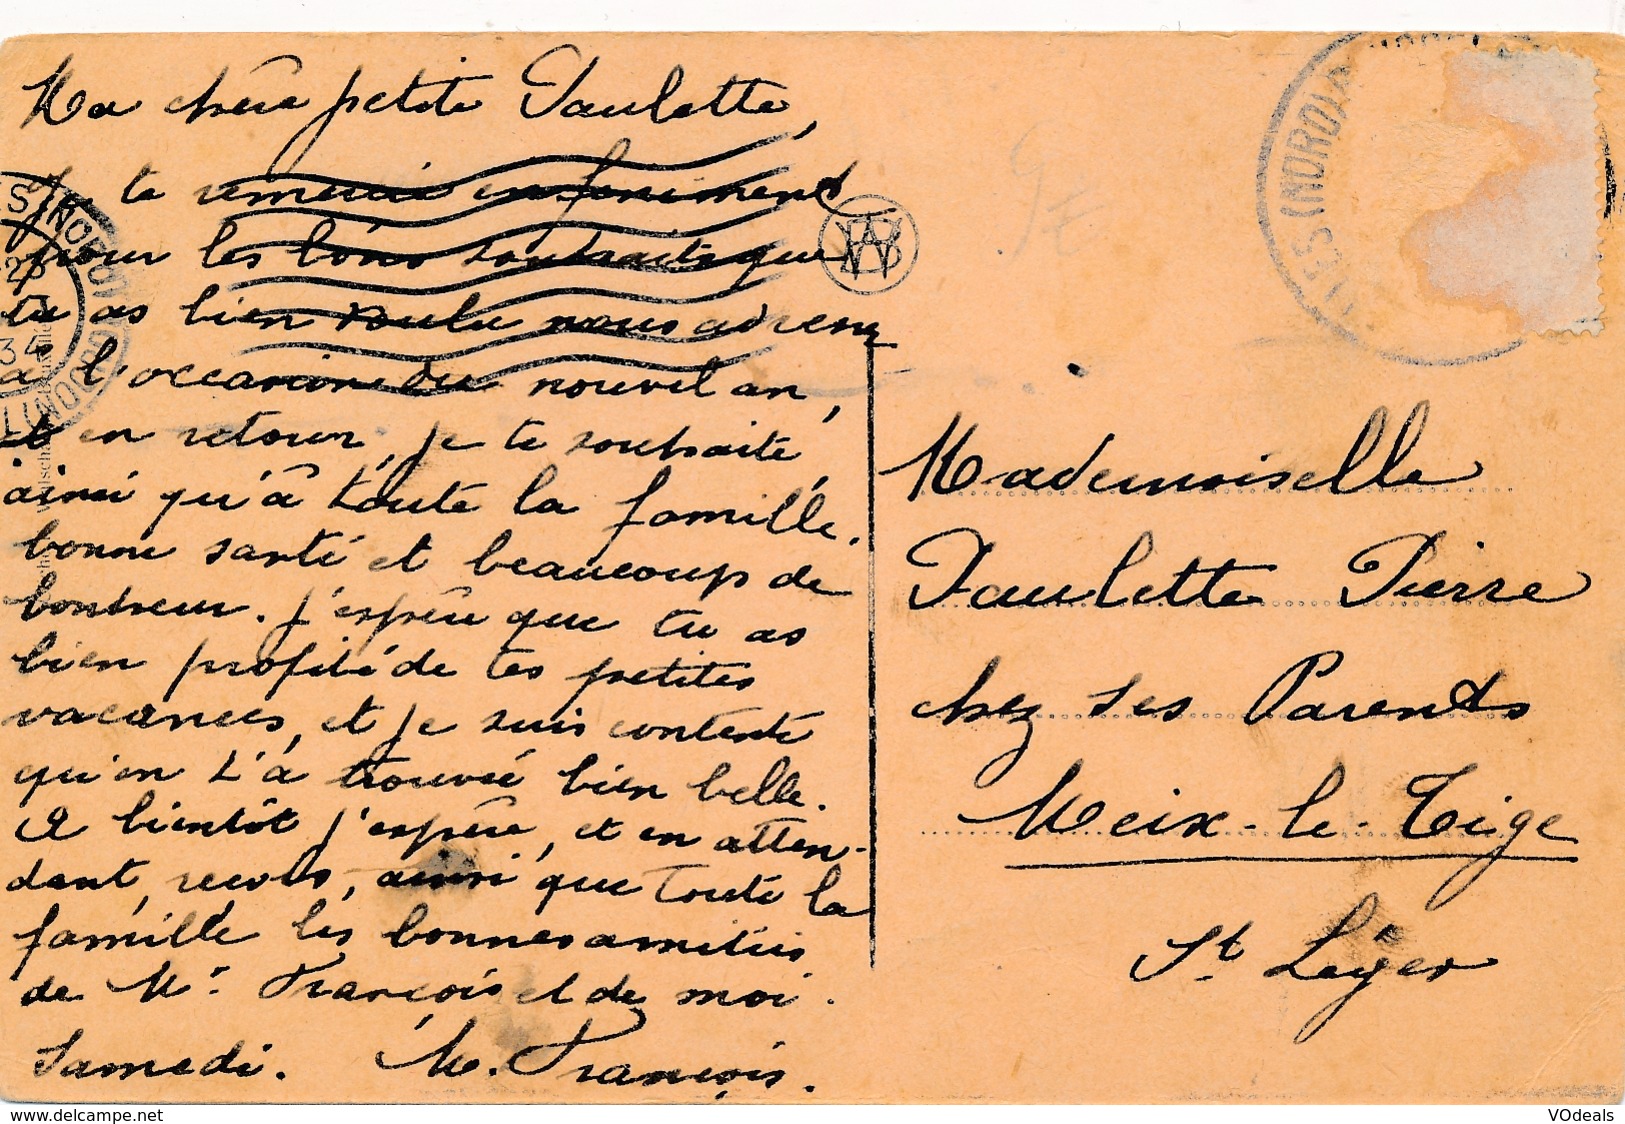 Ma chère petite Paulette,
Je te remercie enfiniment
pour les bons souhaits que
tu as bien voulu nous adresser
à l'occasion du nouvel an,
et en retour, je te souhaite,
ainsi qu'à toute la famille.
bonne santé et beaucoup de
bonheur. J'espère que tu as
bien profité de tes petites
vacances, et je suis contente
qu'on t'a trouvée bien belle.
A bientôt j'espère, et en atten-
dant, reçois, ainsi que toute la
famille les bonnes amitiés
de Mr. François et de moi.
Samedi. M. François.
Mademoiselle
Paulette Pierre
chez ses Parents
Meix-le-Tige
St Léger
(NORD)
S (NORD)
34
(NORD)
VOdeals